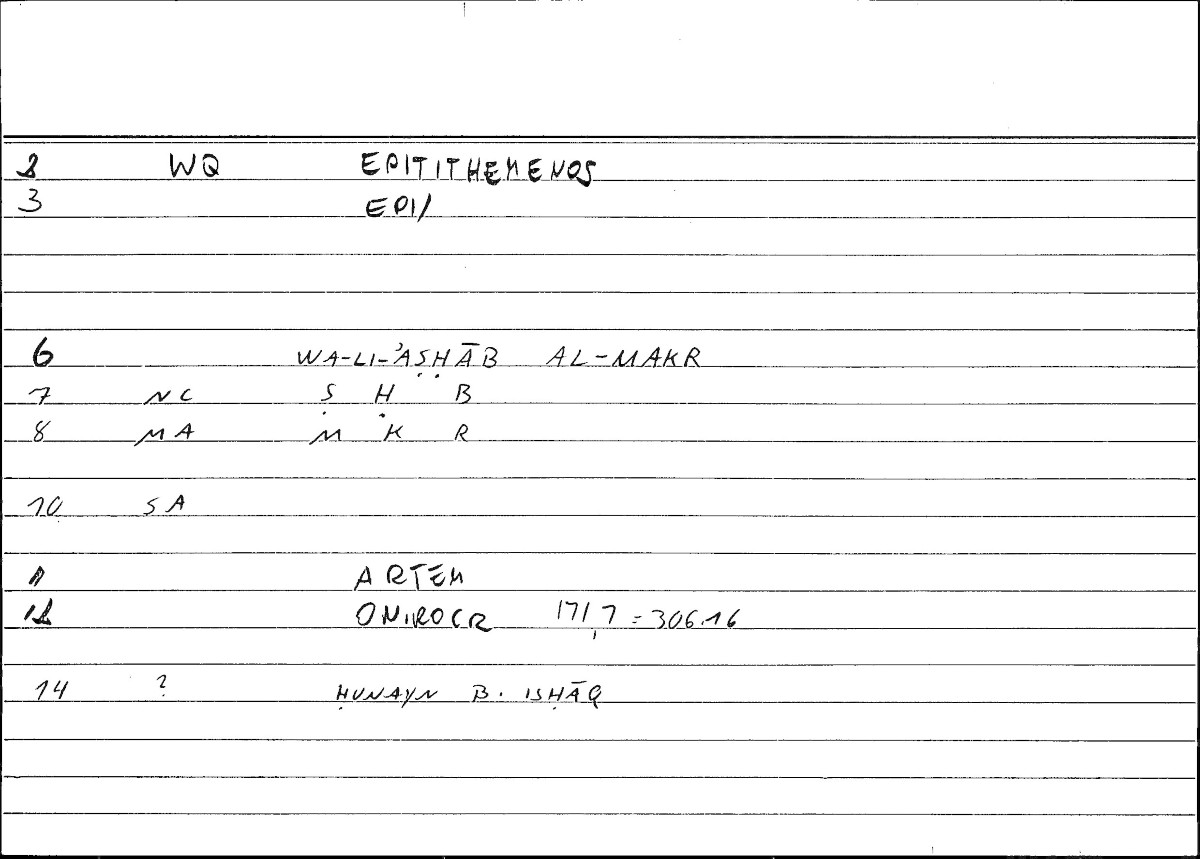 2 WQ EPITITHEMENOS
3 EPI/
6 WA-LI-ʾAṢḤĀB AL-MAKR
7 NC Ṣ Ḥ B
8 MA M K R
10 SA
11 ARTEM
12 ONIROCR 171,7 = 306.16
14 ? ḤUNAYN B. ISḤĀQ